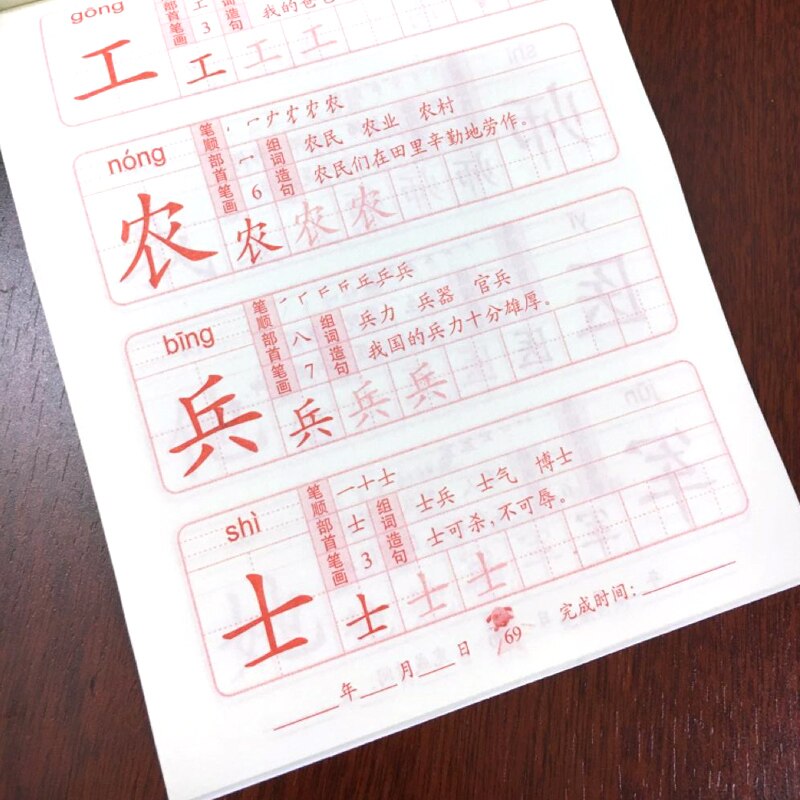 gōng
部首 工 词造句 我的爸
笔画 3
工 工 工 工
nóng
笔顺
部首 一 组词 农民 农业 农村
笔画 6 造句 农民们在田里辛勤地劳作。
农 农 农 农
bīng
笔顺
部首 八 组词 兵力 兵器 官兵
笔画 7 造句 我国的兵力十分雄厚。
兵 兵 兵 兵
shì
笔顺 一十士
部首 士 组词 士兵 士气 博士
笔画 3 造句 士可杀，不可辱。
士 士 士 士
69 完成时间：
年 月 日